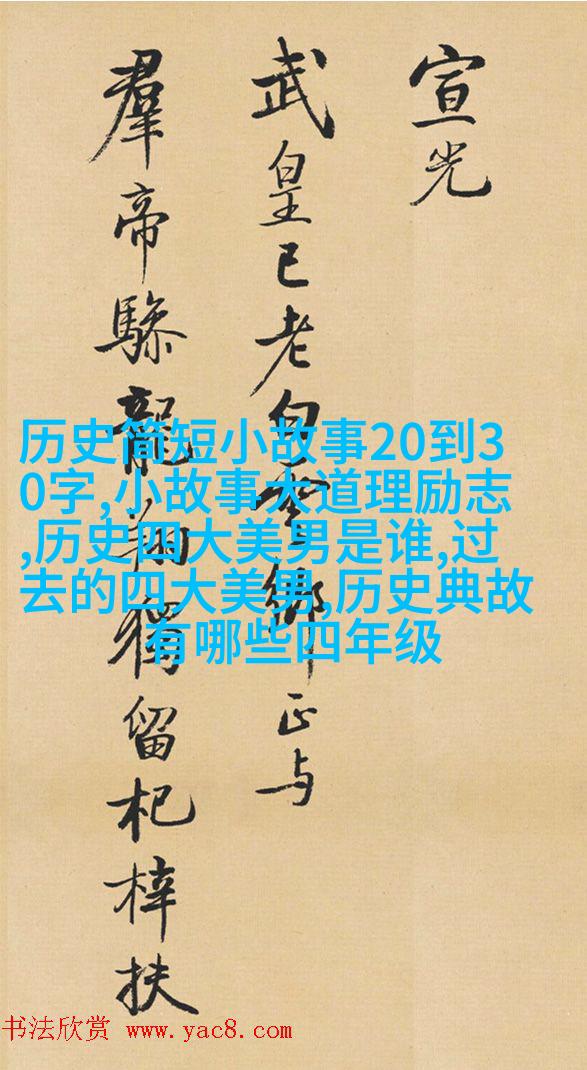 宣光
武皇已老白雲鄉正与
羣帝驂龍翔獨留杞梓扶
历史简短小故事20到3
0字,小故事大道理励志
,历史四大美男是谁,过
去的四大美男,历史典故
有哪些四年级
书法欣赏 www.yac8.com